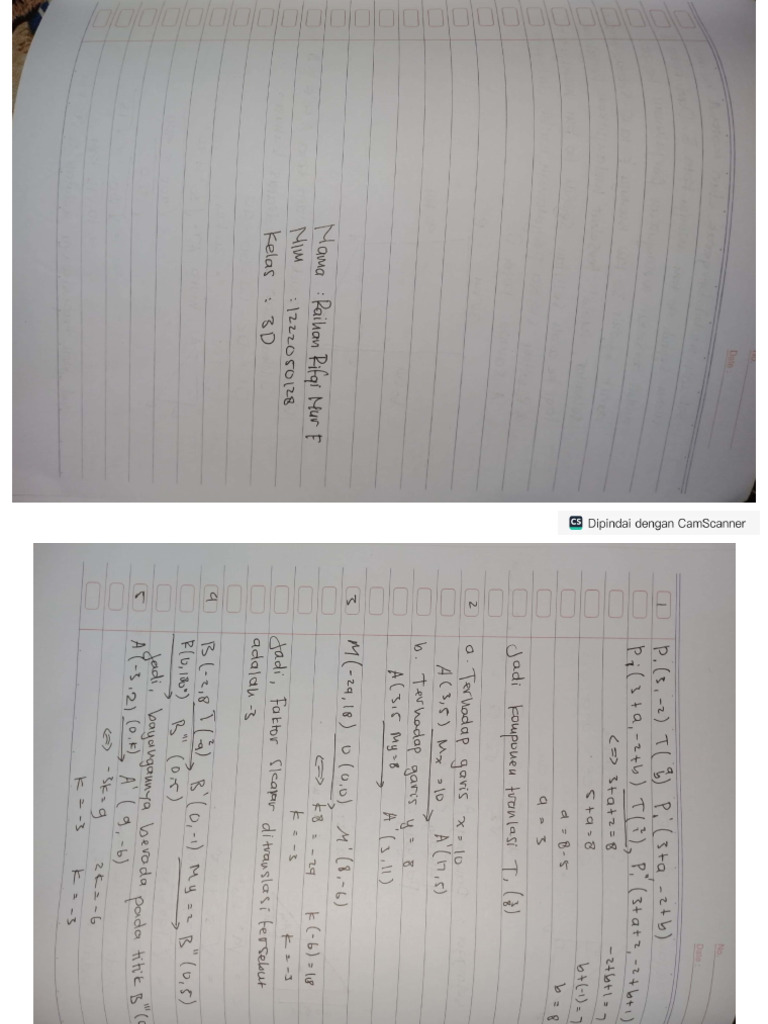 Nama : Raihan Rifqi Nur F
NIM : 1222050128
Kelas : 3D
CS Dipindai dengan CamScanner
No.
Date
1 P1 (3, -2) T (a b) P1' (3+a - 2+b)
P2 (3+a, -2+b) T (2 1), P1" (3+a+2, -2+b+1)
<=> 3+a+2 = 8 -2+b+1 = 7
5+a = 8 b+(-1) = 7
a = 8-5 b = 8
a = 3
Jadi komponen tranlasi T, (3 8)
2 a. Terhadap garis x = 10
A (3,5) Mx = 10 A' (17,5)
b. Terhadap garis y = 8
A (3,5 My=8 A' (3,11)
3 M (-24,18) D (0,0) M' (8,-6)
<=> k8 = -24 k(-6) = 18
k = -3 k = -3
Jadi, Faktor Slcapar ditranslasi tersebut
adalah -3
4 B (-2,8 B' (0,-1) My = 2 B" (0,5)
R(0,180°) B''' (0,5)
Jadi, bayangannya berada pada titik B'''
5 A (-3,2) (0,k) A' (9,-6)
<=> -3k = 9 2k = -6
k = -3 k = -3